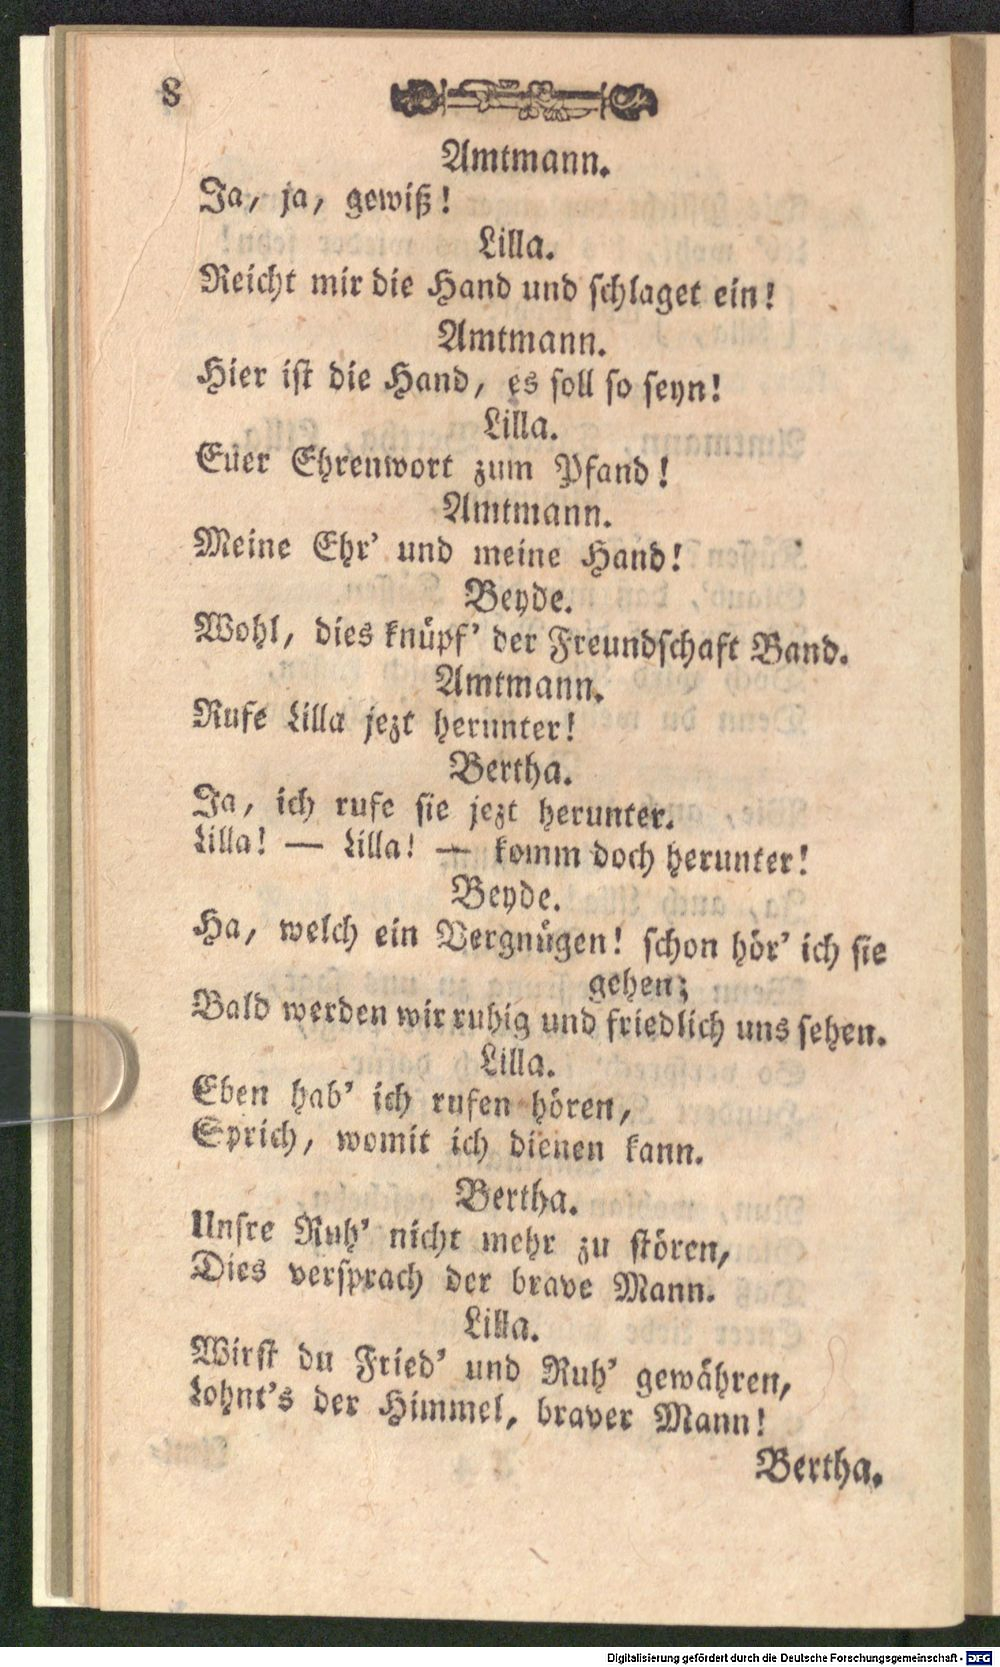 8
Amtmann.
Ja, ja, gewiß!
Lilla.
Reicht mir die Hand und schlaget ein!
Amtmann.
Hier ist die Hand, es soll so seyn!
Lilla.
Euer Ehrenwort zum Pfand!
Amtmann.
Meine Ehr' und meine Hand!
Beyde.
Wohl, dies knüpf' der Freundschaft Band.
Amtmann.
Rufe Lilla jezt herunter!
Bertha.
Ja, ich rufe sie jezt herunter.
Lilla! — Lilla! — komm doch herunter!
Beyde.
Ha, welch ein Vergnügen! schon hör' ich sie
gehen;
Bald werden wir ruhig und friedlich uns sehen.
Lilla.
Eben hab' ich rufen hören,
Sprich, womit ich dienen kann.
Bertha.
Unsre Ruh' nicht mehr zu stören,
Dies versprach der brave Mann.
Lilla.
Wirst du Fried' und Ruh' gewähren,
Lohnt's der Himmel, braver Mann!
Bertha.
Digitalisierung gefördert durch die Deutsche Forschungsgemeinschaft - DFG